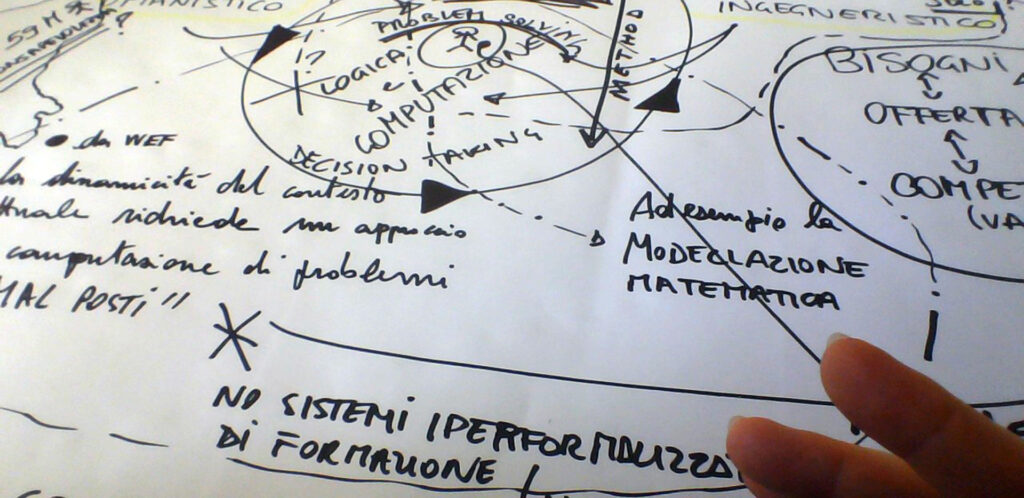 INGEGNERISTICO
PROBLEM SOLVING
METHOD
LOGICA
e
COMPUTAZIONE
DECISION TAKING
BISOGNI
OFFERTA
COMPE
(VA
• da WEF
La dinamicità del contesto
ttuale richiede un approccio
computazione di problemi
MAL POSTI"
Ad esempio la
MODELLAZIONE
MATEMATICA
NO SISTEMI IPERFORMALIZZA
DI FORMAZIONE